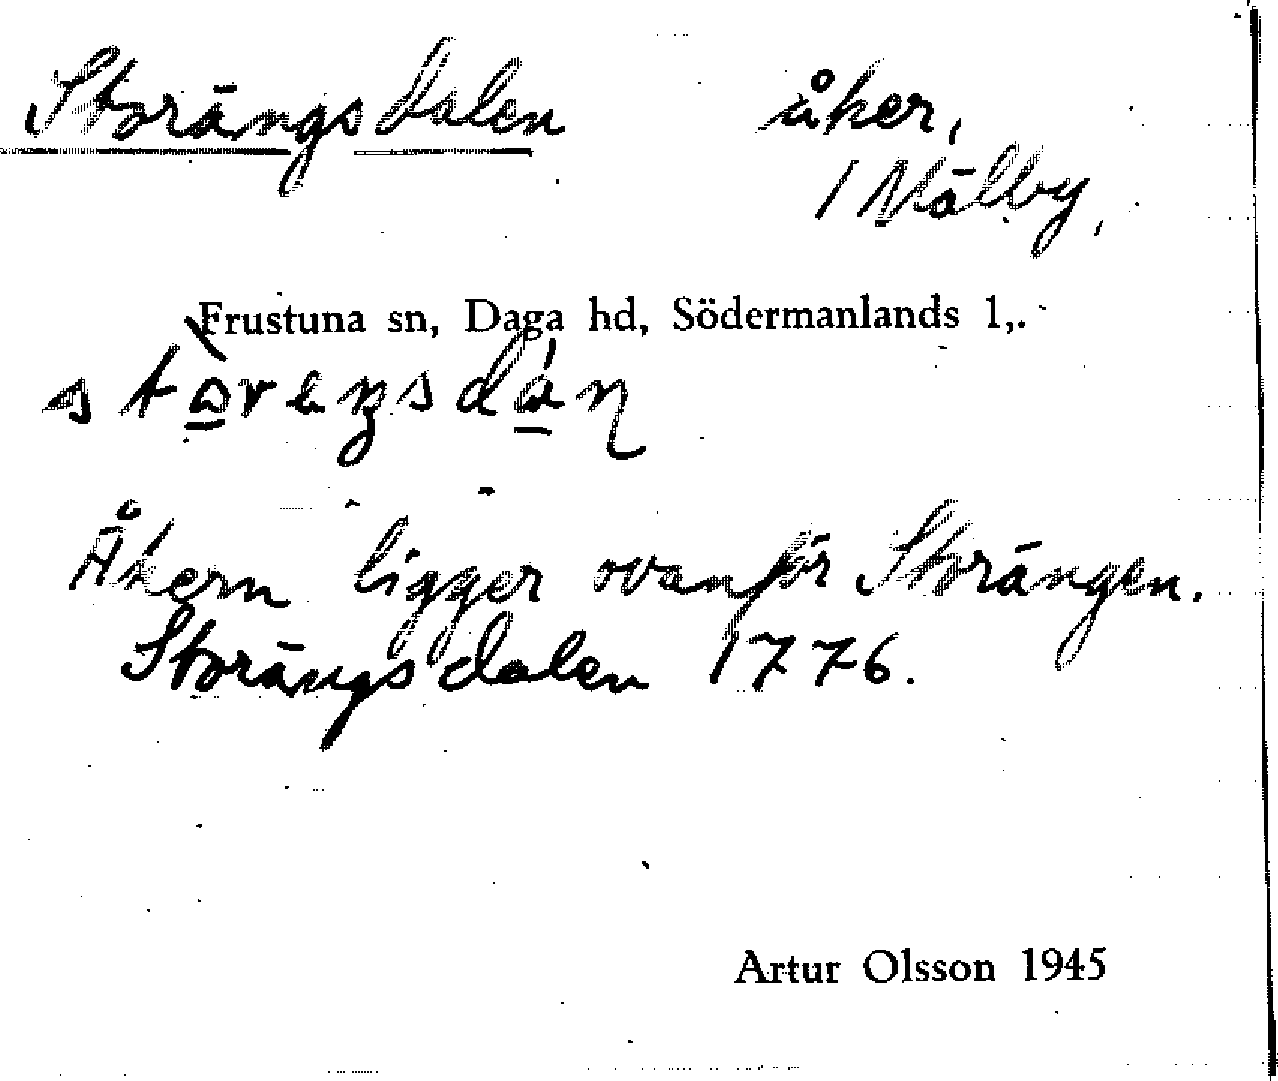 Storängsdalen åker,
1 Nälby,
Frustuna sn, Daga hd, Södermanlands l,.
Åkern ligger ovanför Storängen.
Storängsdalen 1776.
Artur Olsson 1945